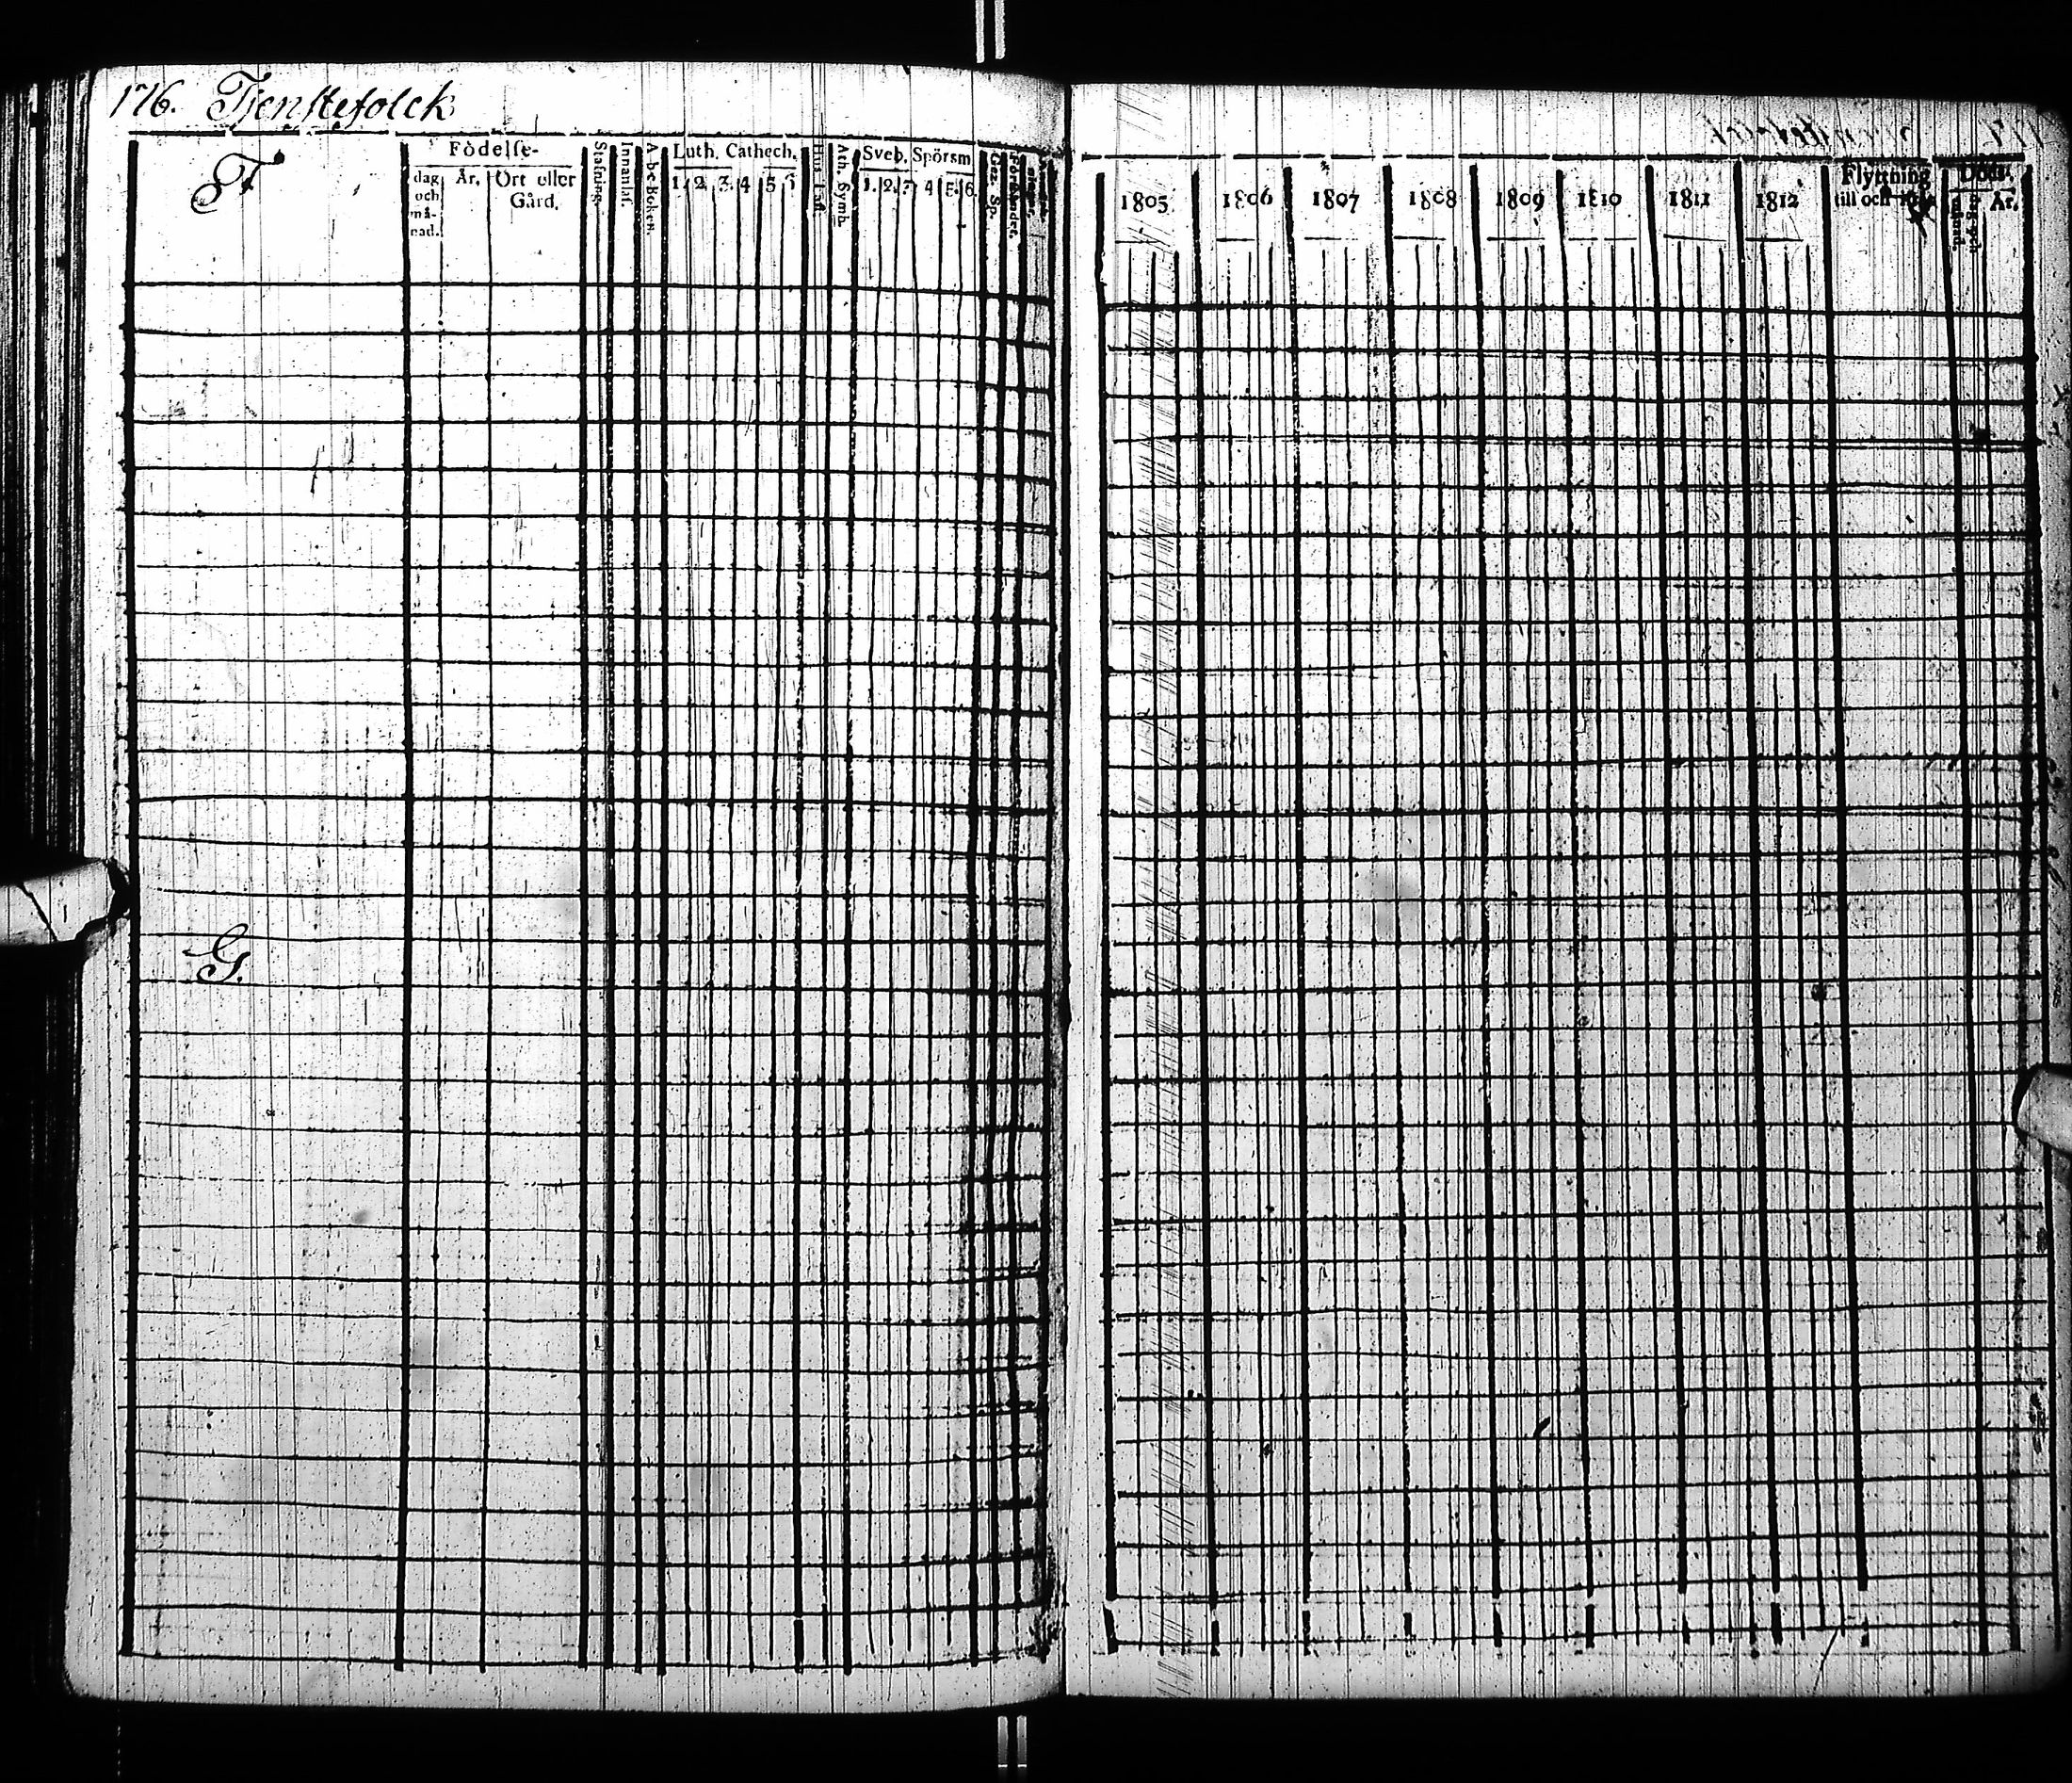 176. Tjenstefolck
F
Födelse-
dag och må-nad.
År.
Ort eller Gård.
Stafning.
Innanläs.
A-b-c-Boken.
Luth. Cathech.
1. 2. 3. 4 5
Hus Tafl.
Ath. Symb.
Sveb. Spörsm
1. 2. ? 4 5. 6.
Gez. Sp.
Förståndet.
G.
1805 1806 1807 1808 1809 1810 1811 1812
Flyttning
till och
Döds-
År.